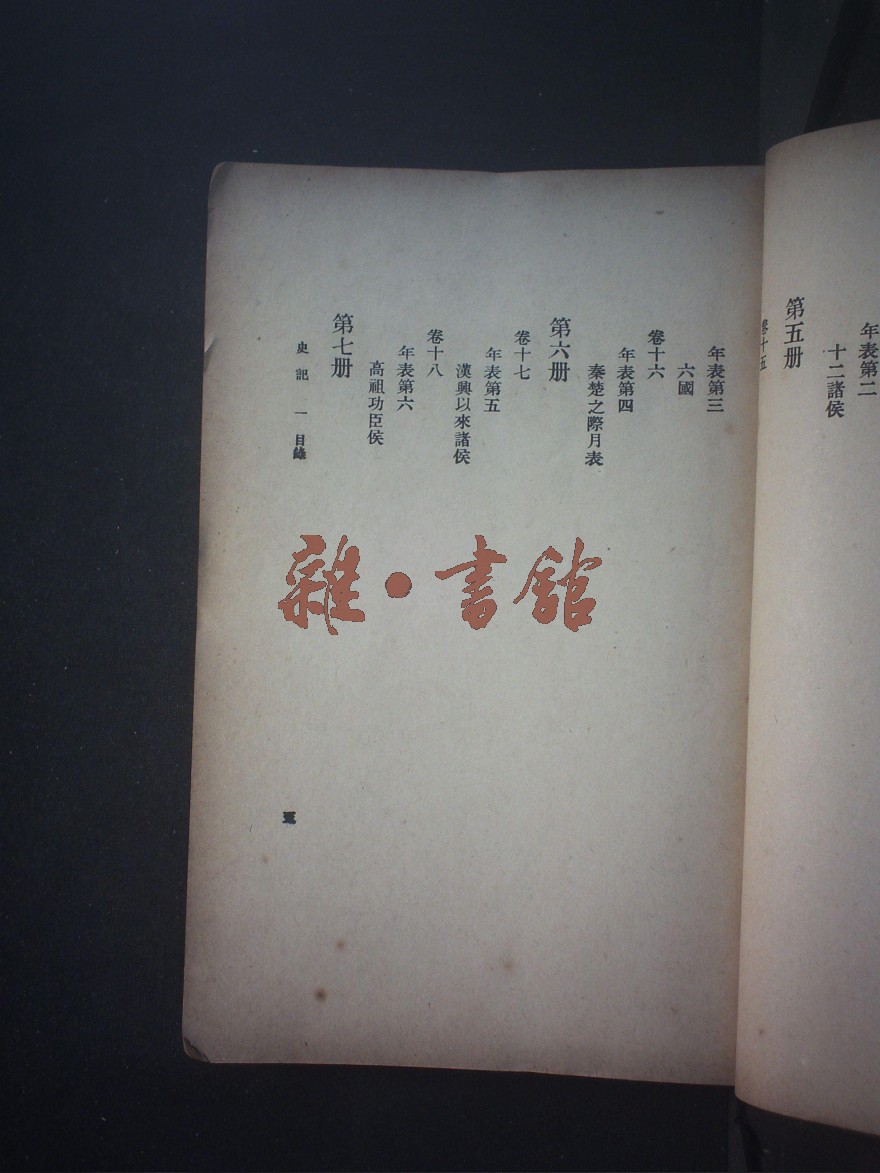 年表第二
十二諸侯
第五册
卷十五
年表第三
六國
卷十六
年表第四
秦楚之際月表
第六册
卷十七
年表第五
漢興以來諸侯
卷十八
年表第六
高祖功臣侯
第七册
史記一目錄
雜·書館